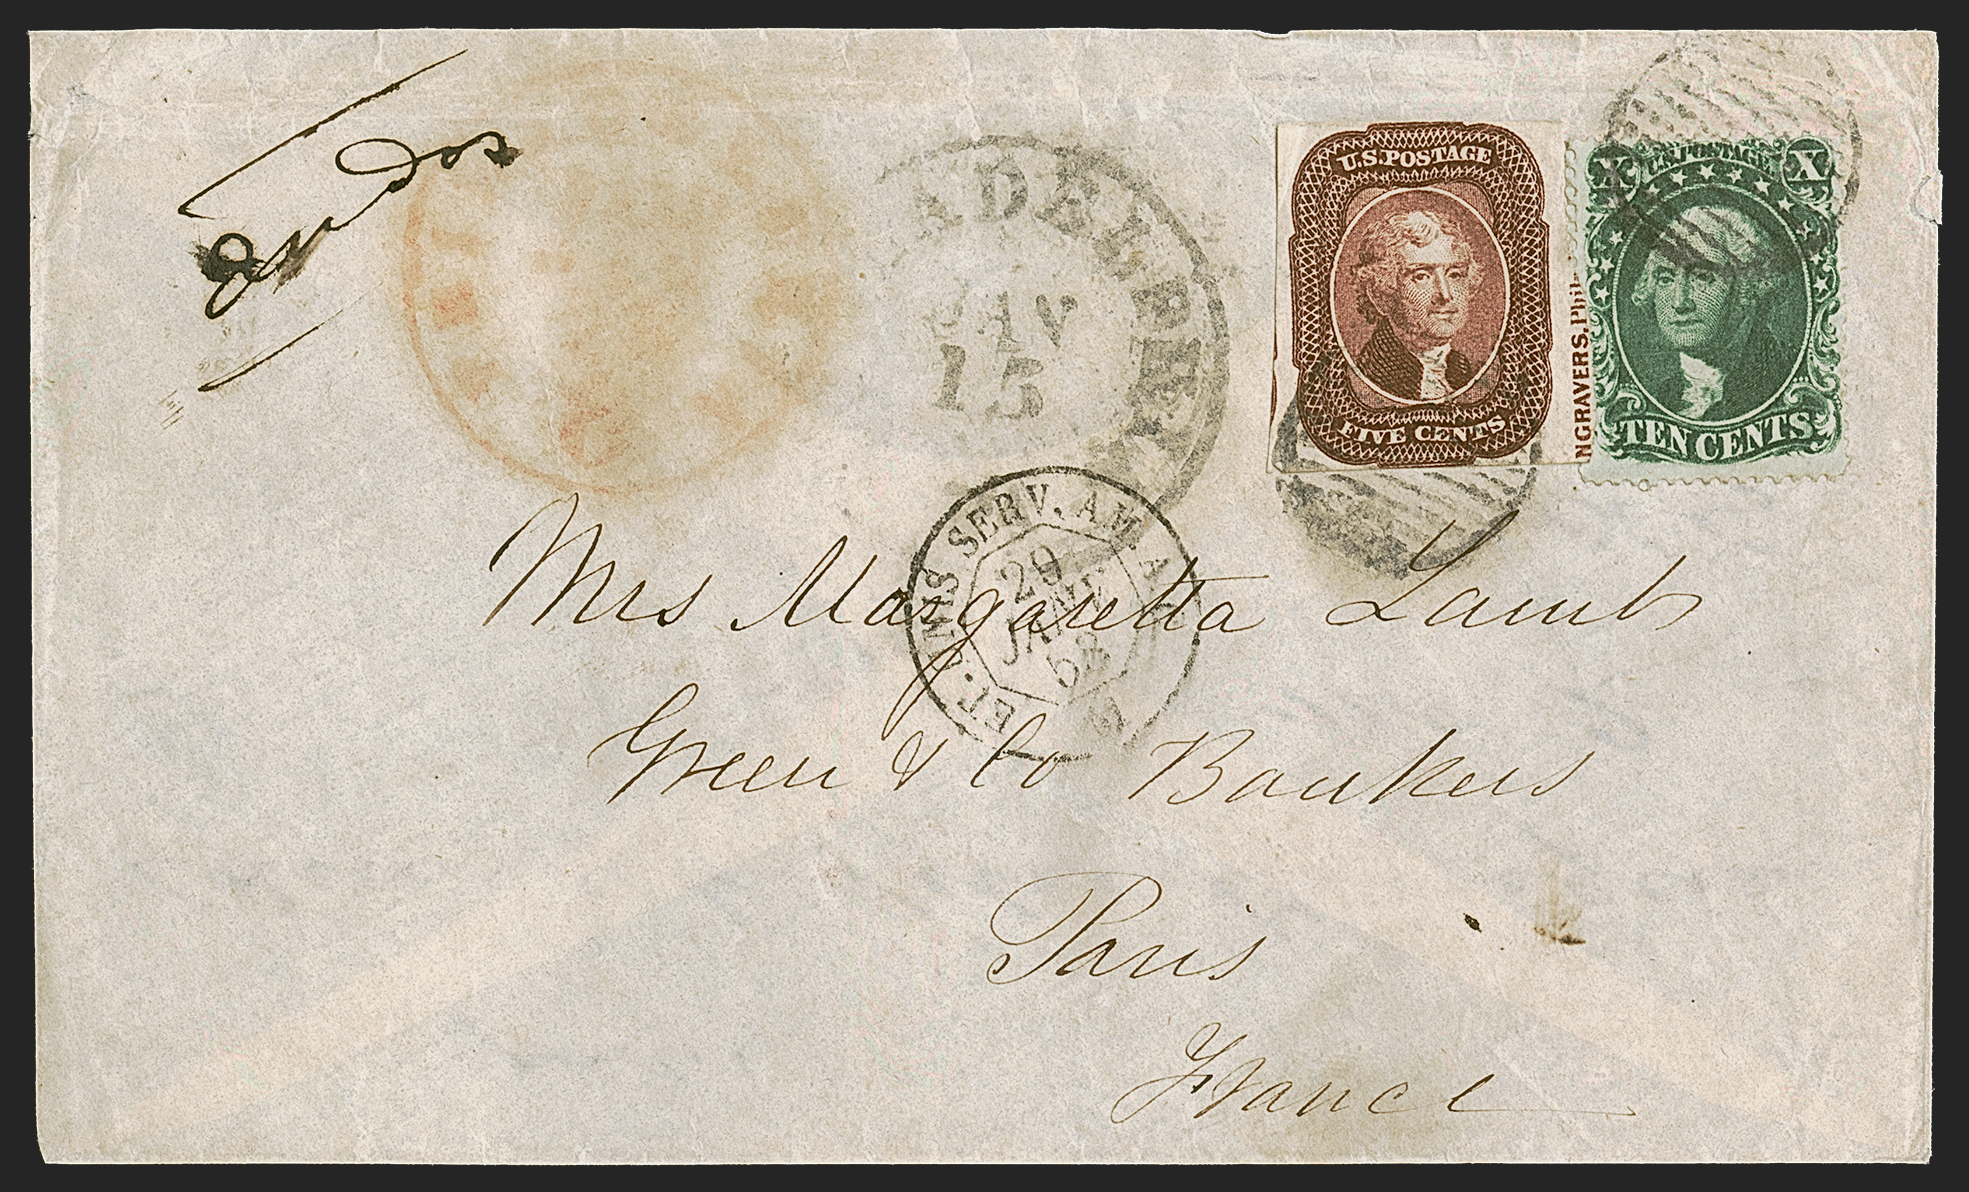 U.S. POSTAGE
FIVE CENTS
NGRAVERS, Phil
X U.S. POSTAGE X
TEN CENTS
ADELPHIA
JAN
15
ET.-UNIS SERV. AM.
29
JANV
Mrs Margaretta Lamb
Green & Co Bankers
Paris
France